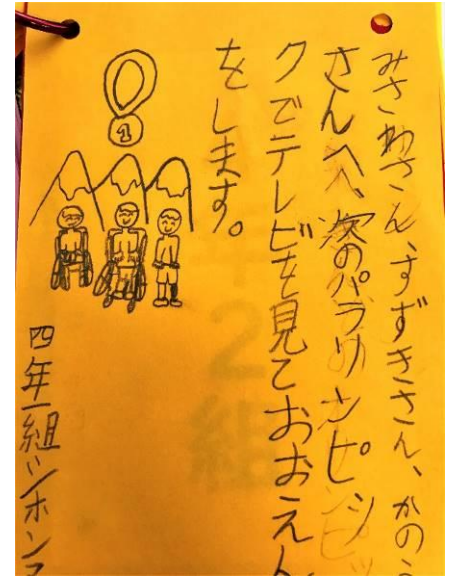 みさわさん、すずきさん、かのう
さんへ、次のパラリンピッ
クでテレビを見ておおえん
をします。
1
四年一組
年2組